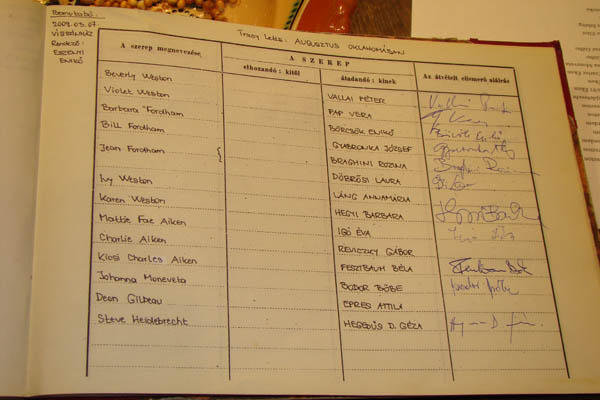 Bemutató:
2009.03.07.
VÍGSZÍNHÁZ
Rendező:
ESZENYI
ENIKŐ
Tracy Letts: AUGUSZTUS OKLAHOMÁBAN
A szerep megnevezése
A SZEREP
elhozandó: kitől
átadandó: kinek
Az átvételt elismerő aláírás
Beverly Weston
VALLAI PÉTER
Violet Weston
PAP VERA
Barbara Fordham
BÖRCSÖK ENIKŐ
Bill Fordham
GYABRONKA JÓZSEF
Jean Fordham {
BRAGHINI ROZINA
DÖBRÖSI LAURA
Ivy Weston
LÁNG ANNAMÁRIA
Karen Weston
HEGYI BARBARA
Mattie Fae Aiken
IGÓ ÉVA
Charlie Aiken
REVICZKY GÁBOR
Kicsi Charles Aiken
FESZTBAUM BÉLA
Johanna Monevata
BODOR BÖBE
Deon Gilbeau
EPRES ATTILA
Steve Heidebrecht
HEGEDŰS D. GÉZA